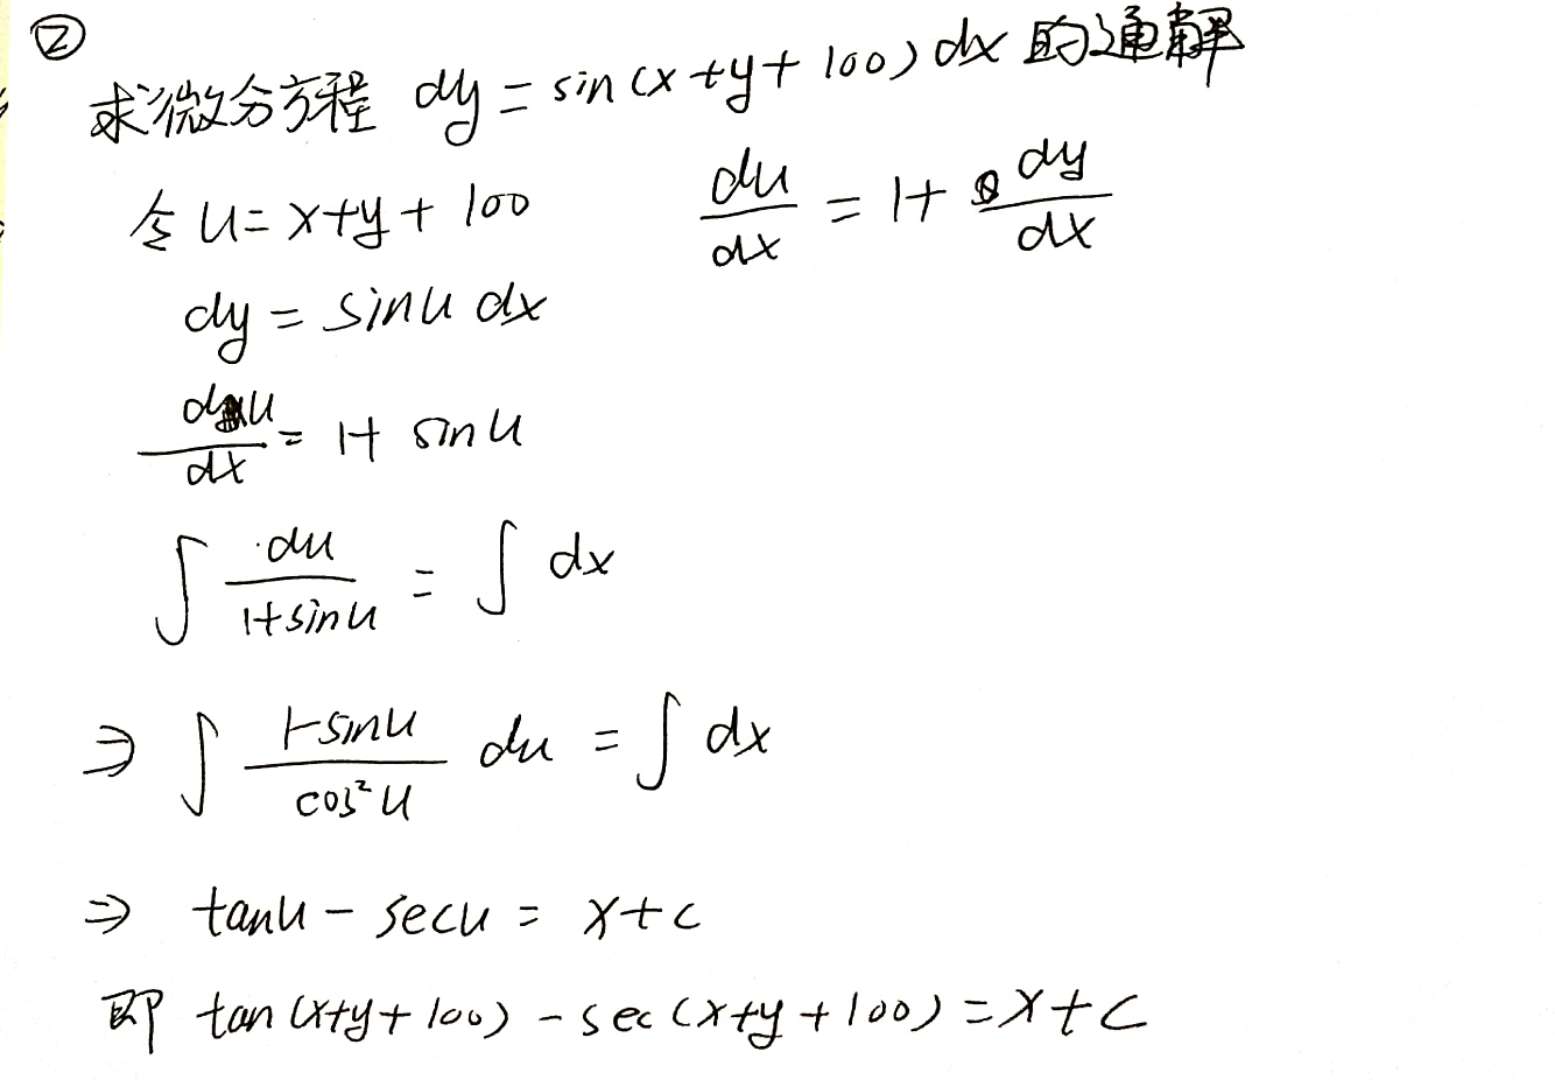 ②
求微分方程 dy = sin(x+y+100)dx 的通解
令 u=x+y+100 du/dx = 1+ dy/dx
dy = sinu dx
du/dx = 1+ sinu
∫ du/(1+sinu) = ∫ dx
⇒ ∫ (1-sinu)/(cos²u) du = ∫ dx
⇒ tanu - secu = x+c
即 tan(x+y+100) - sec(x+y+100) = x+c